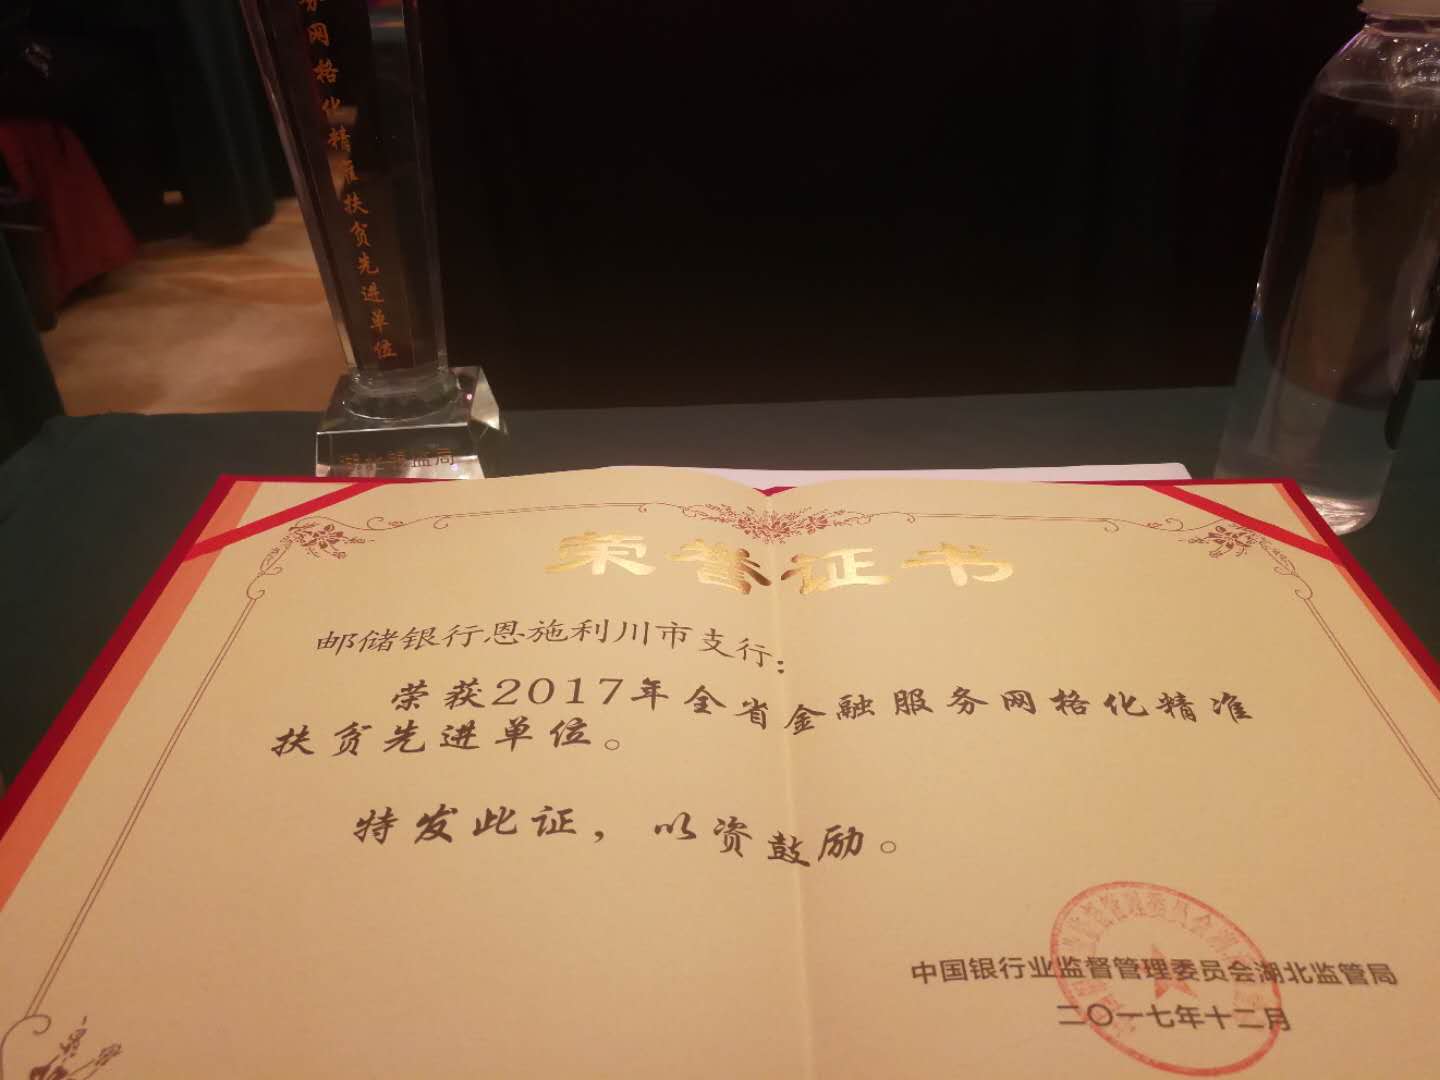 务网格化精准扶贫先进单位
湖北银监局
荣誉证书
邮储银行恩施利川市支行：
荣获2017年全省金融服务网格化精准
扶贫先进单位。
特发此证，以资鼓励。
中国银行业监督管理委员会湖北监管局
二〇一七年十二月